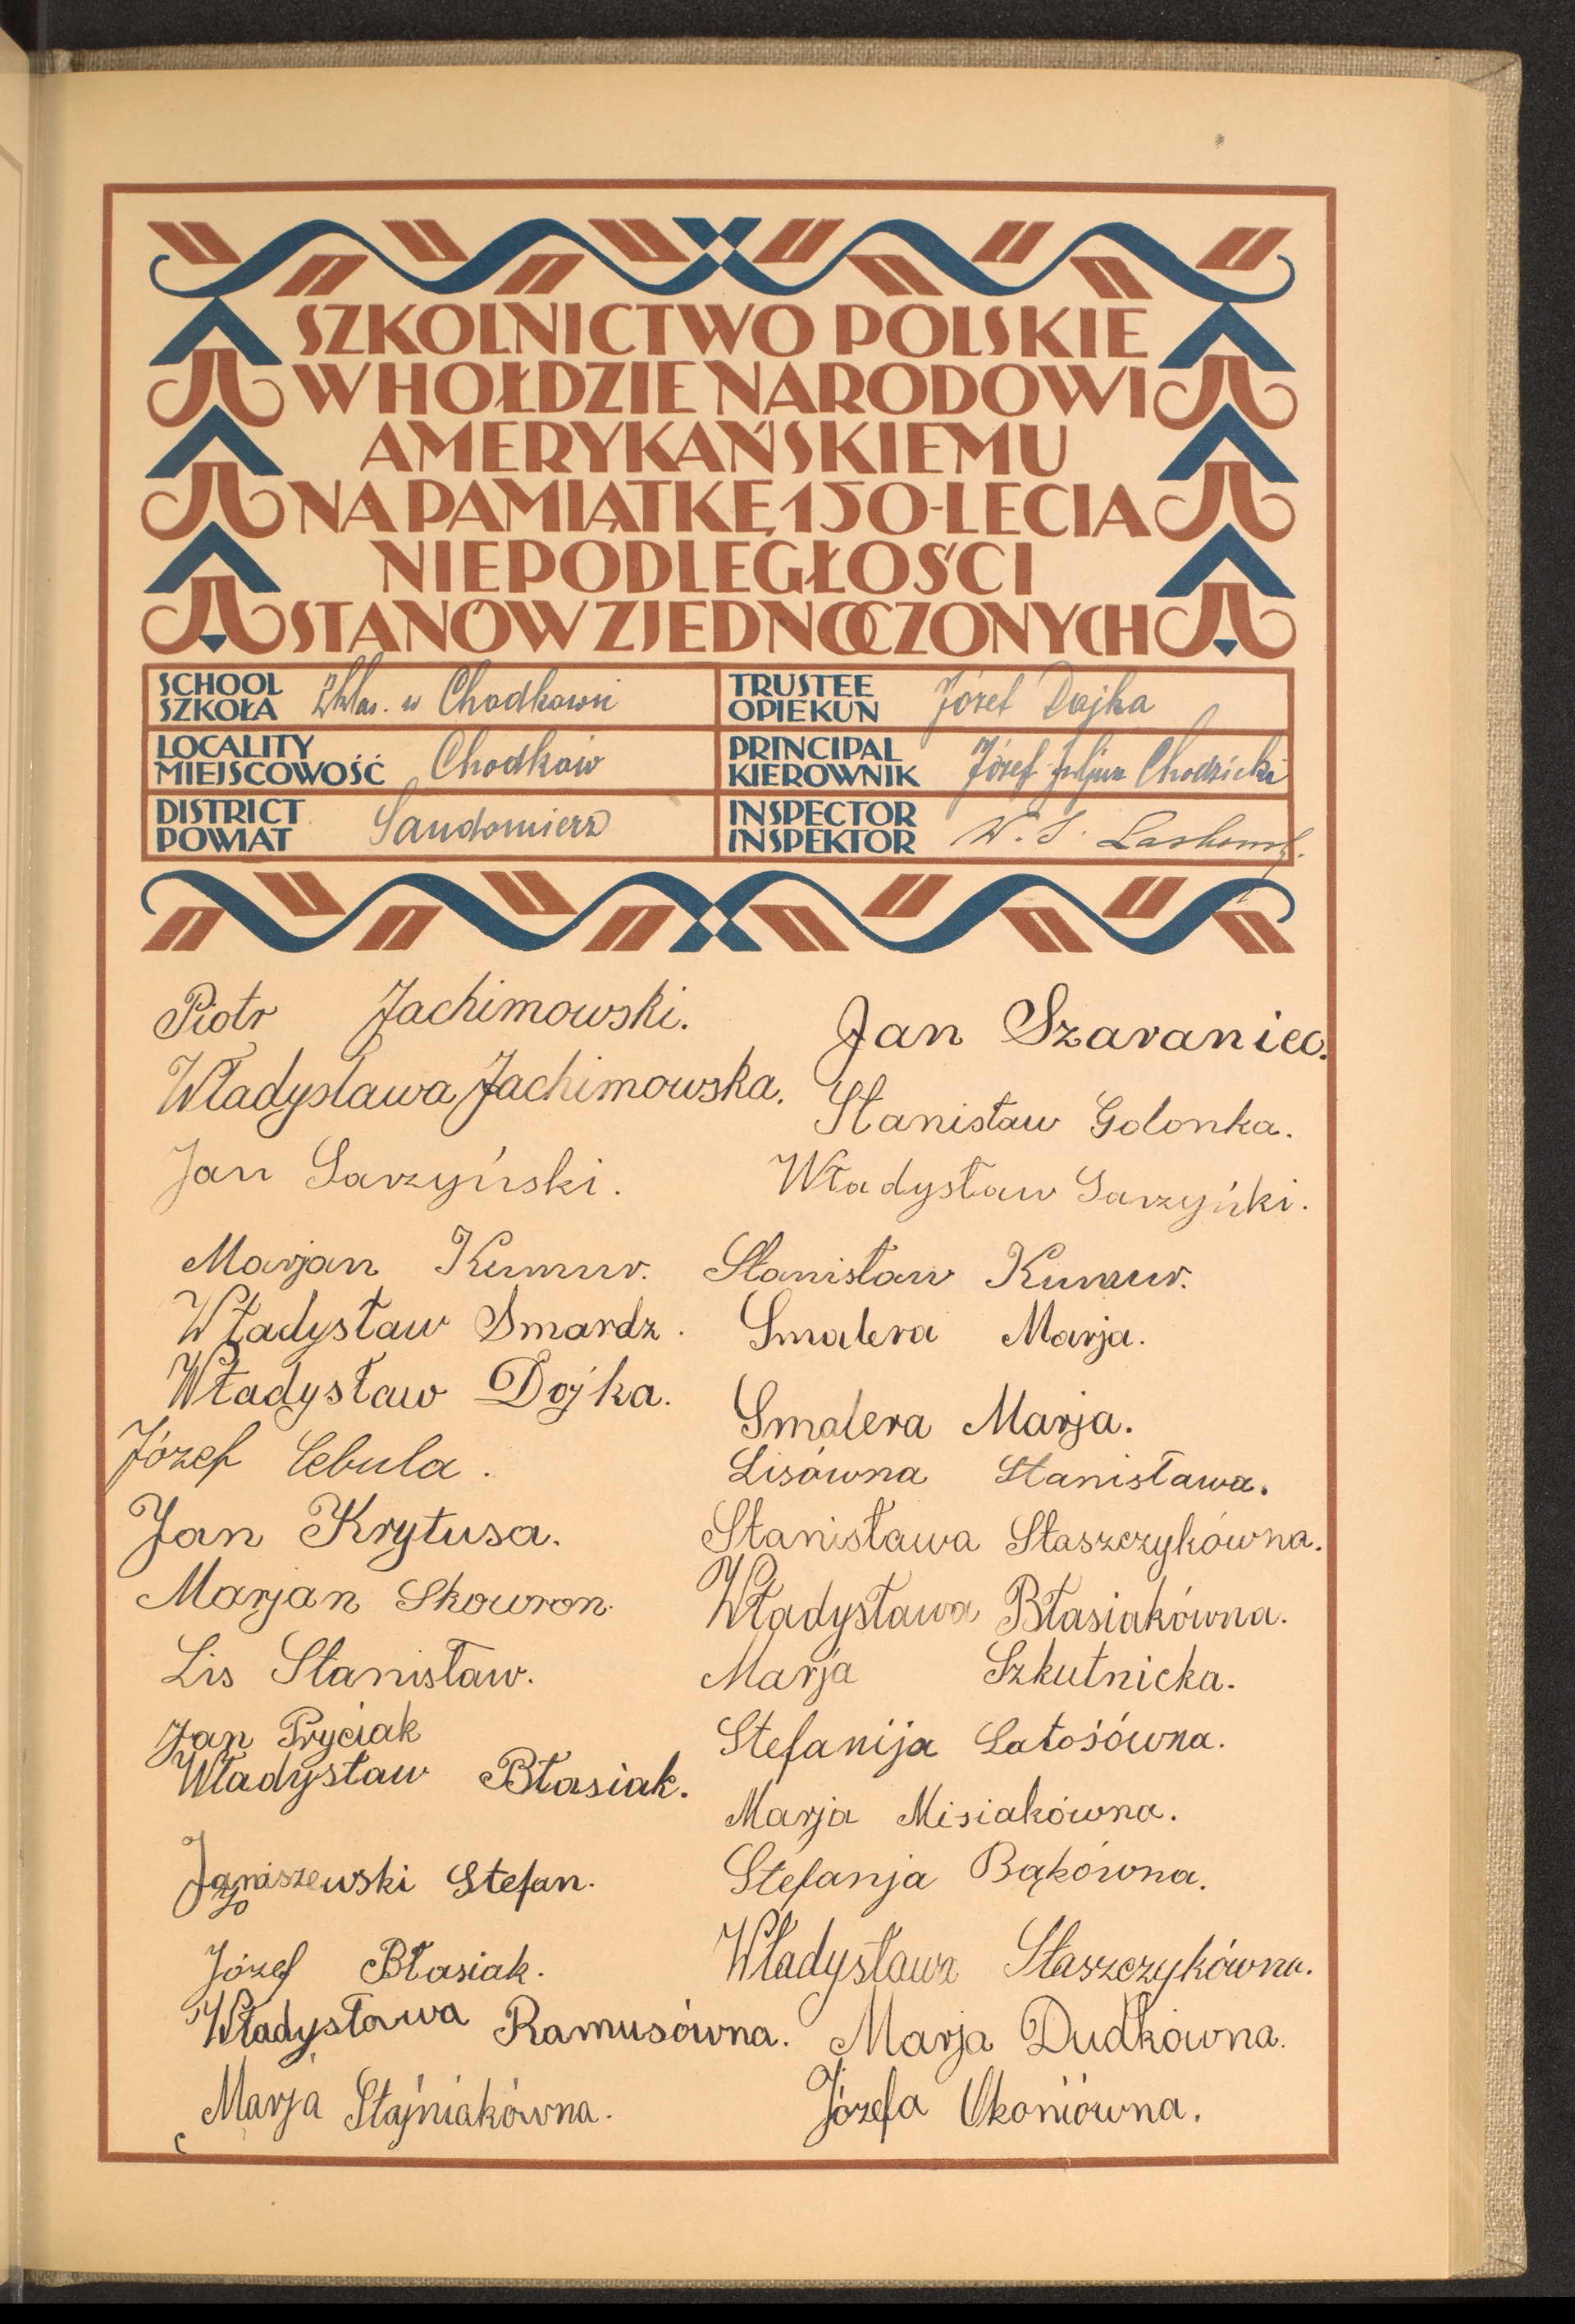 SZKOLNICTWO POLSKIE
W HOŁDZIE NARODOWI
AMERYKAŃSKIEMU
NA PAMIĄTKĘ 150-LECIA
NIEPODLEGŁOŚCI
STANÓW ZJEDNOCZONYCH
SCHOOL
SZKOŁA
2 klas. w Chodkowie
TRUSTEE
OPIEKUN
Józef Dojka
LOCALITY
MIEJSCOWOŚĆ
Chodków
PRINCIPAL
KIEROWNIK
Józef Juljan Chodzicki
DISTRICT
POWIAT
Sandomierz
INSPECTOR
INSPEKTOR
W. S.
Piotr Jachimowski.
Władysława Jachimowska.
Jan Sarzyński.
Marjan Kumur.
Władysław Smardz.
Władysław Dojka.
Józef Cebula.
Jan Krytusa.
Marjan Skowron.
Lis Stanisław.
Jan Pryciak
Władysław Błasiak.
Janiszewski Stefan.
Józef Błasiak.
Władysława Ramusówna.
Marja Stajniakówna.
Jan Szaraniec.
Stanisław Golonka.
Władysław Sarzyńki.
Stanisław Kumur.
Smalera Marja.
Smalera Marja.
Lisówna Stanisława.
Stanisława Staszczykówna.
Władysława Błasiakówna.
Marja Szkutnicka.
Stefanija Latosówna.
Marja Misiakówna.
Stefanja Bąkówna.
Władysława Staszczykówna.
Marja Dudkówna.
Józefa Okoniówna.